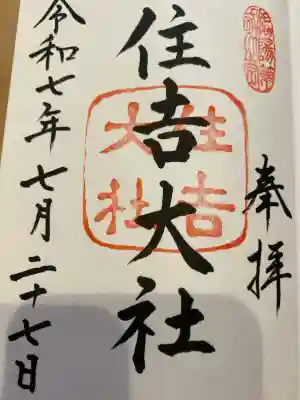 奉拝
住吉大社
住吉
大社
令和七年七月二十七日